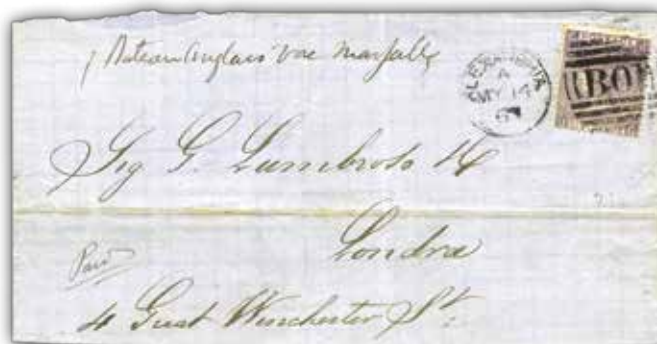 p Bateau Anglais voie Marseille
ALEXANDRIA
A
MY 14
B01
Sig G. Lumbroso & C
Londra
Paid
4 Great Winchester St: